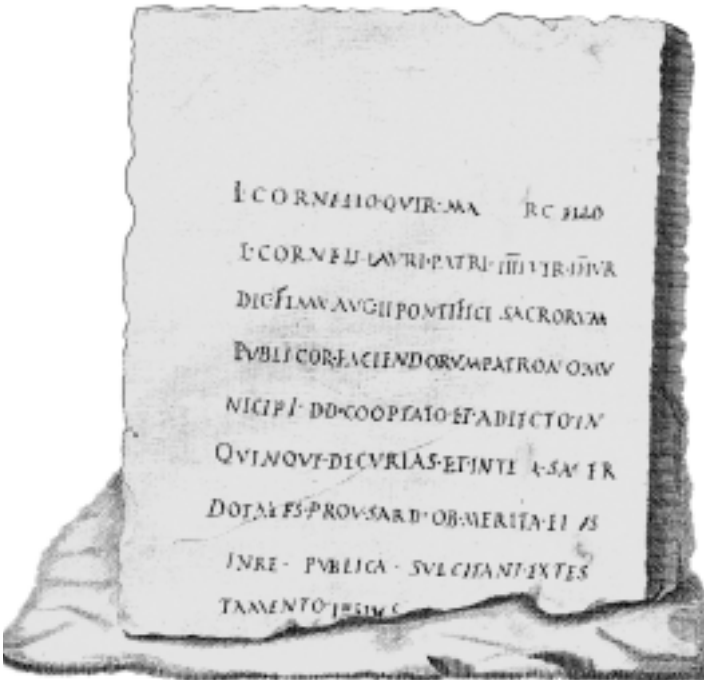 L·CORNELIO·QVIR·MA RCELLO
L·CORNELI·LAVRI·PATRI·IIII VIR·IIII VR
DIC·FLAM·AVG II PONTIFICI·SACRORVM
PVBLICOR·FACIENDORVM PATRONO MV
NICIPI·DD·COOPTATO·ET·ADIECTO·IN
QVINQVE·DECVRIAS·ET·INTE R·SACER
DOTALES·PROV·SARD·OB·MERITA·EI VS
IN RE·PVBLICA·SVLCITANI·EX TES
TAMENTO IPSIVS